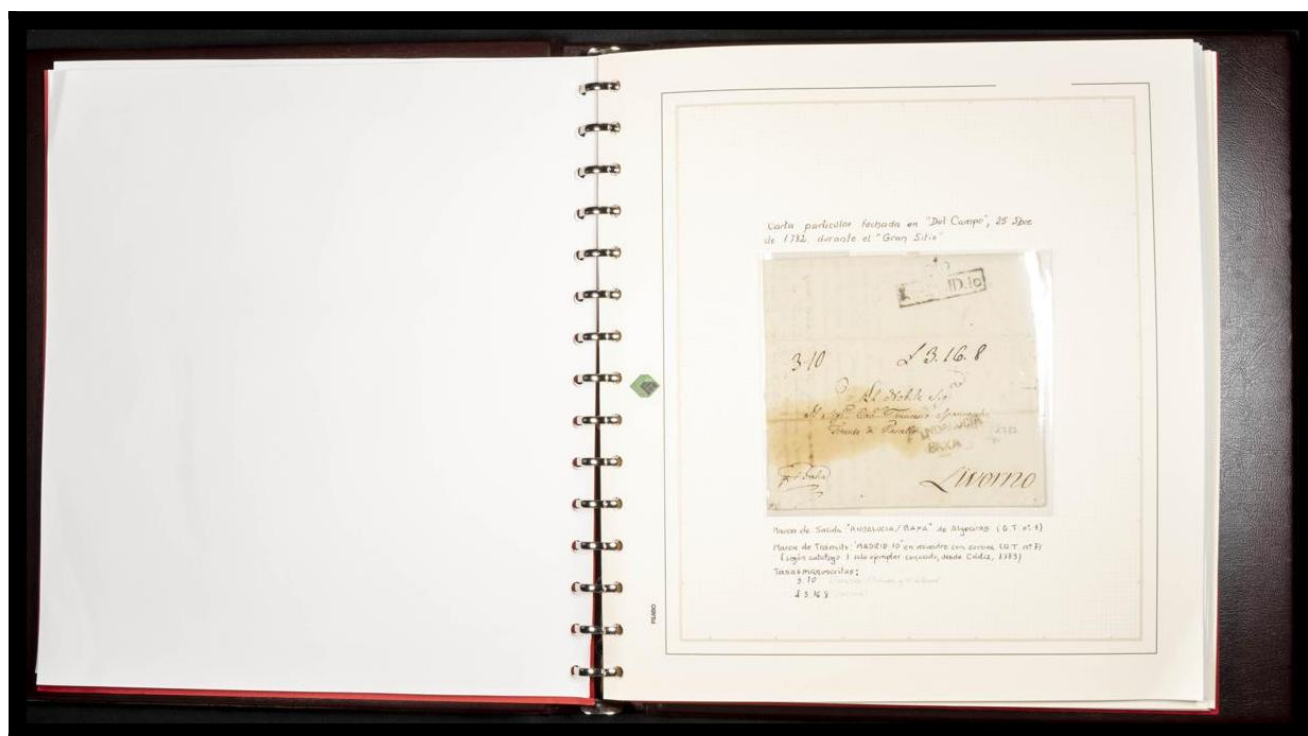 Carta particular fechada en "Del Campo", 25 Sbre
de 1782, durante el "Gran Sitio"
3.10
3.16.8
Al Noble Sig
ANDALUCIA
BAXA
Livorno
Marca de Salida "ANDALUCIA/BAXA" de Algeciras (G.T. nº. 8)
Marca de Tránsito: "MADRID.10" en recuadro con corona (G.T. nº 7)
(según catálogo 1 solo ejemplar conocido, desde Cádiz, 1783)
Tasas manuscritas:
3.10
£ 3.16.8
FILABO